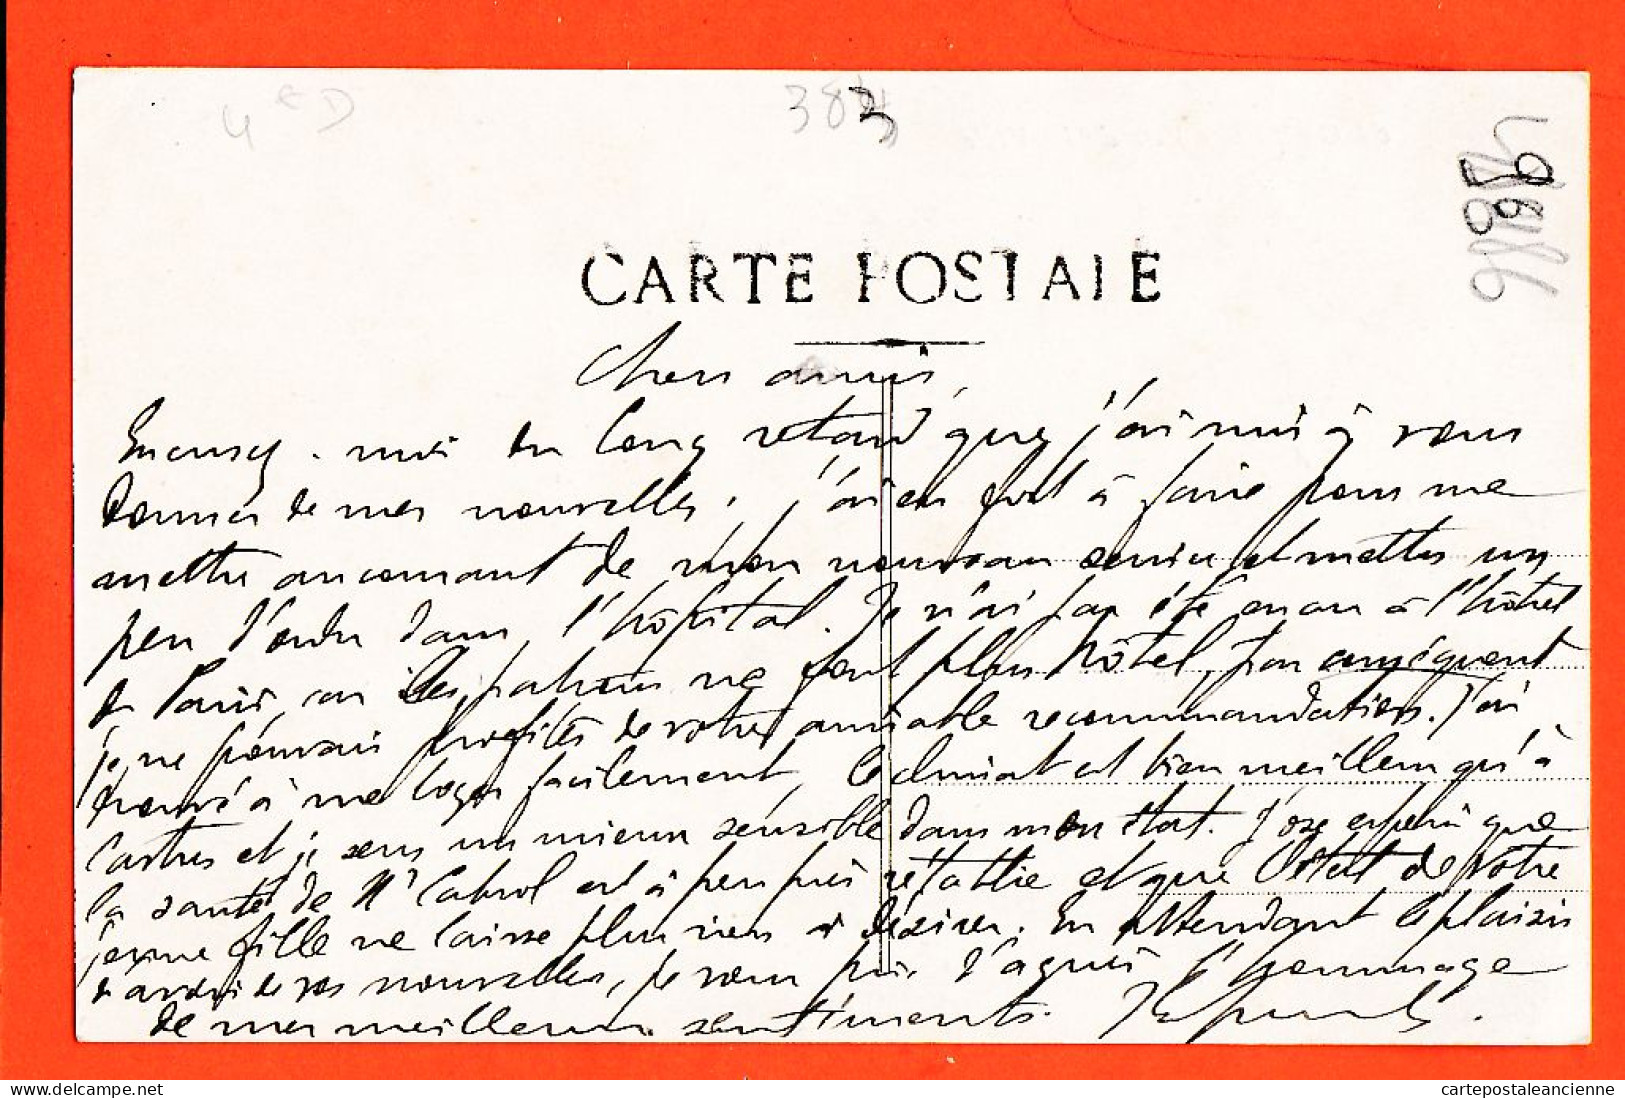 383
CARTE POSTALE
Chers amis,
Excusez-moi du long retard que j'ai mis à vous
donner de mes nouvelles, j'ai eu fort à faire pour me
mettre au courant de mon nouveau service et mettre un
peu d'ordre dans l'hôpital. Je n'ai pas été  à l'hôtel
de Paris, car les patrons ne font plus hôtel, par conséquent
je ne pouvais profiter de votre aimable recommandation. J'ai
trouvé à me loger facilement, le climat est bien meilleur qu'à
Castres et je sens un mieux sensible dans mon état. J'ose espérer que
la santé de Mr Cabrol est à peu près rétablie et que l'état de votre
jeune fille ne laisse plus rien à désirer. En attendant le plaisir
d'avoir de vos nouvelles, je vous prie d'agréer l'hommage
de mes meilleurs sentiments.
cartepostaleancienne